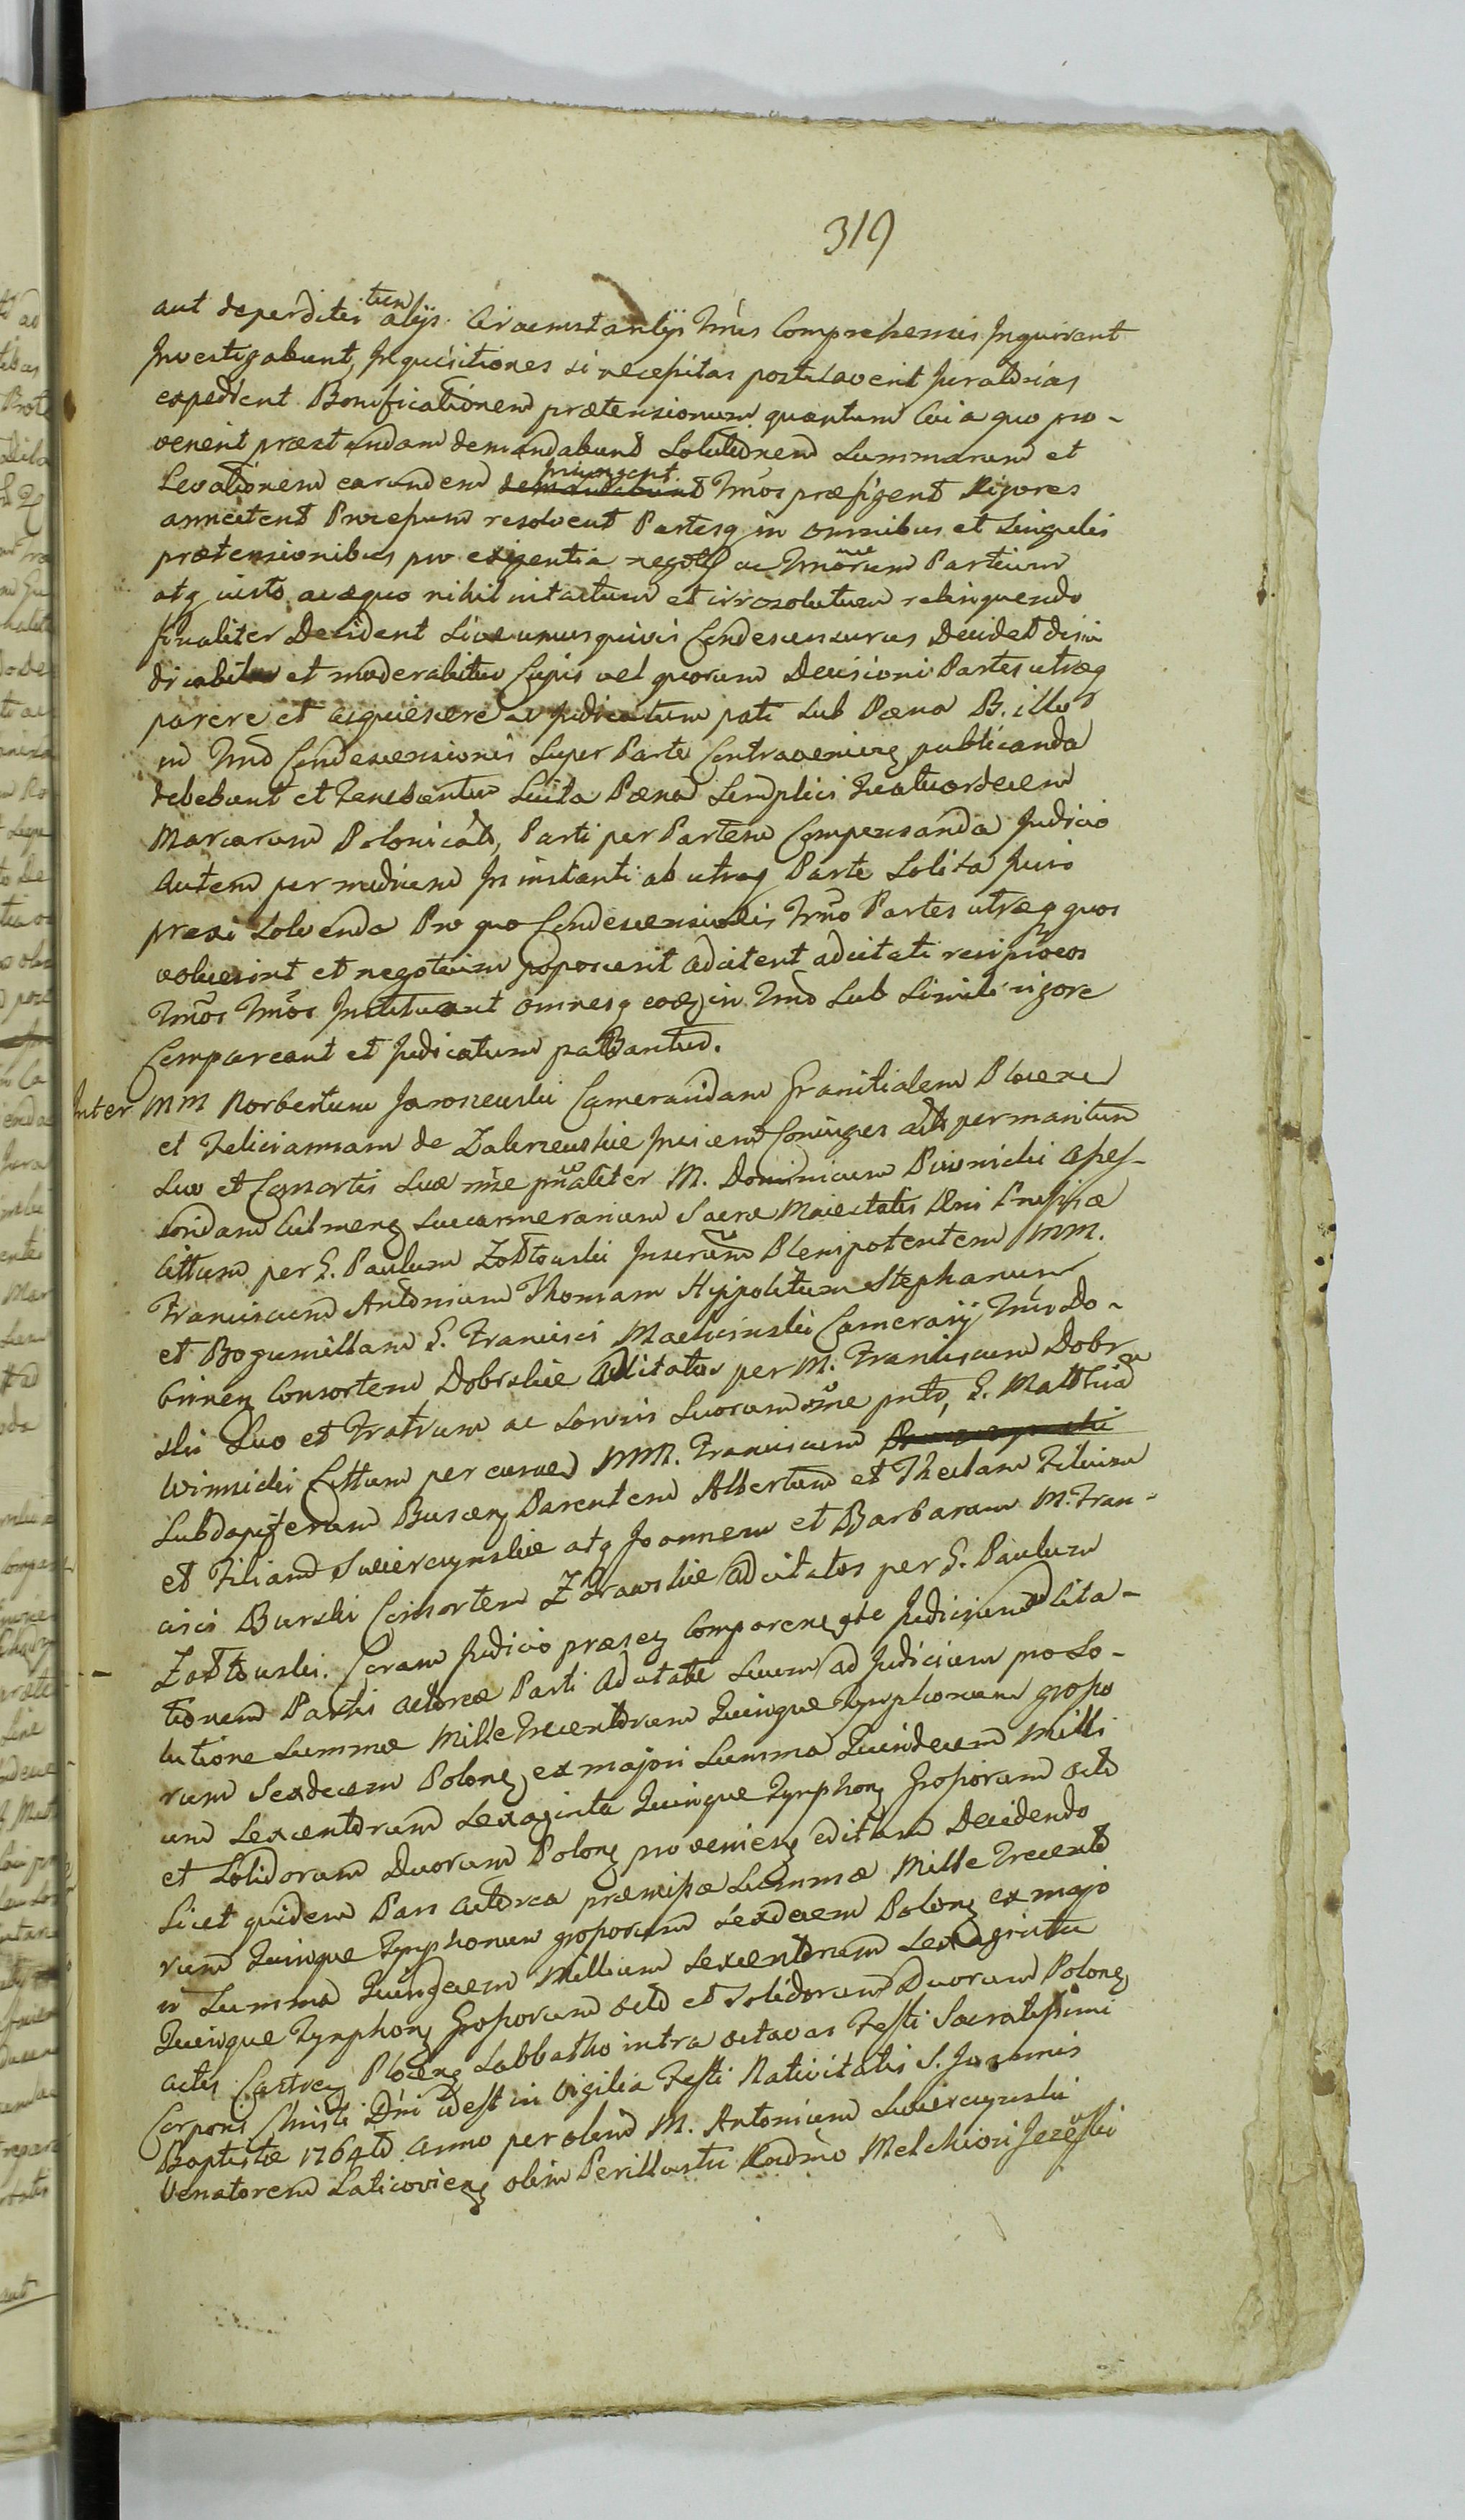 319
aut deperditis tum alijs Circumstantijs Tmis Comprehensis Inquirant
Investigabunt, Inquisitiones si necessitas postulaverit Juratorias
expedient Bonificationem prætensionum quantum Cui a quo pro-
venerit præstandam demandabunt Solutionem Summarum et
Levationem earundem demandabunt iniungent Tmos præfigent Rigores
annectent Processum resolvent Partesq in omnibus et Singulis
prætensionibus pro exigentia negotij ac Partium
atq iusto ac æquo nihil intactum et irresolutum relinquendo
finaliter Decident Sive unusquivis Condescensurus Decidet diiu
dicabitur et moderabitur Cujus vel quorum Decisioni Partes utræq
parere et acquiescere ac Judicatum pati Sub Pæna B. illor
in Tmo Condescensionis Super Parte Contravenien publicanda
debebunt et Tenebuntur Luita Pæna Simplici Quatuordecem
Marcarum Polonical, Parti per Partem Compensanda Judicio
Autem per medium In instanti ab utraq Parte Solita Juris
praxi Solvenda Pro quo Condescensionis Tmo Partes utræq quos
voluerint et negotium poposcerit adcitent adcitati reciprocos
Tmos Tmos Instituant omnesq eodem in Tmo Sub Simili rigore
Compareant et Judicatum patiantur.
Inter MM Norbertum Jaroszewski Camerarium Granitialem Plocen
et Felicianam de Zaleszewskie Conjuges act permaritum
Suo et Consortis Suæ nne pnaliter M. Dominicum Piwnicki Asses-
soridam Culmen Succamerarium Sacræ Maiestatis Prussiæ
Cittum per G. Paulum Zołtowski Plenipotentem MM.
Franciscum Antonium Thomam Hyppolitum Stephanum
et Bogumillam G. Francisci Machcinski Camerarij Do-
brinen Consortem Dobrskie Adcitatos per M. Franciscum Dobr
ski Suo et Fratrum ac Sororis Suorum nne pntd, G. Matthia
Winnicki Cittum per eundem MM. Franciscum
Subdapiferum Buscen Parentem Albertum et Theclam Filium
et Filiam Swierczynskie atq Joannem et Barbaram M. Fran-
cisci Burski Consortem Zdrawskie Adcitatos per G. Paulum
Zołtowski. Coram Judicio præsen Comparen Judicium Cita-
tionem Partis actoreæ Parti Adcitatæ Suum ad Judicium pro So-
lutione Summæ Mille Trecentorum Quinque Tynphonum grosso
rum Sexdecem Polon, ex majori Summa Quindecem Milli
um Sexcentorum Sexaginta Quinque Tynphon Grossorum octo
et Solidorum Duorum Polon provenien editam Decidendo
Licet quidem Pars actorea præmissæ Summæ Mille Trecento
rum Quinque Tynphonum grossorum Sexdecem Polon ex majo
ri Summa Quindecem Millium Sexcentorum Sexaginta
Quinque Tynphon Grossorum octo et Solidorum Duorum Polon
actis Castren Plocen Sabbatho intra octavas Festi Sacratissimi
Corporis Christi Dni id est in Vigilia Festi Nativitatis S. Joannis
Baptistæ 1764to anno per olim M. Antonium Swierczynski
Venatorem Laticovien olim Perillustri Rndmo Melchiori Jezewski